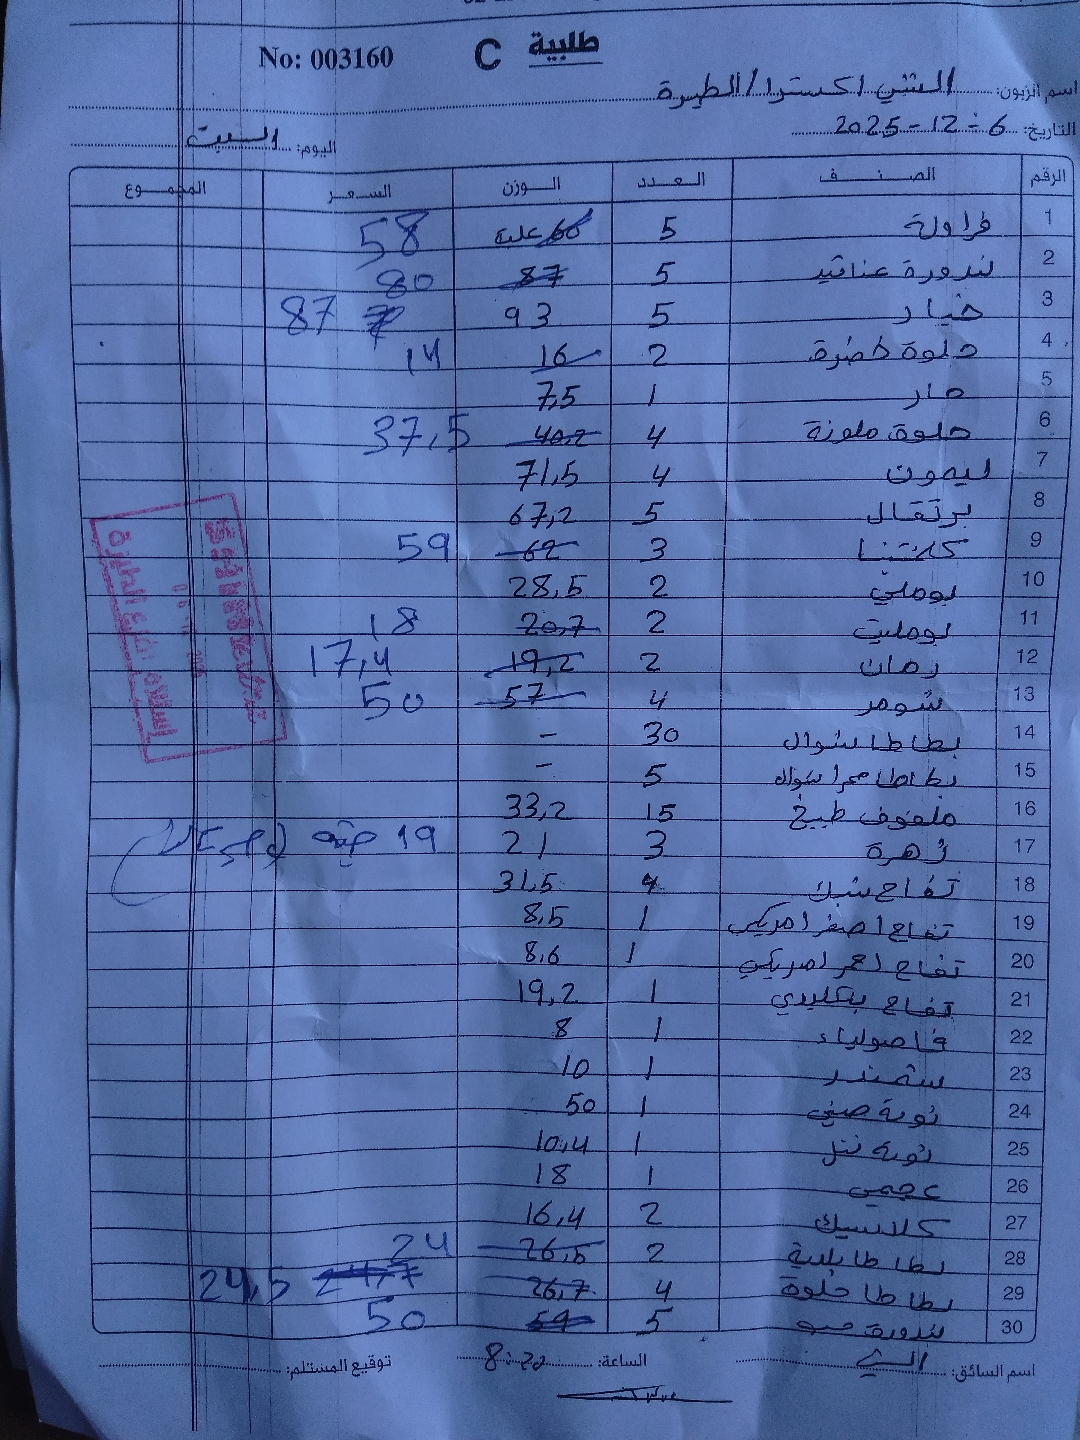 No: 003160 C طلبية
اسم الزبون: المثنى اكسترا / الطيرة
التاريخ: 6-12-2025
اليوم: السبت
الرقم الصنف العدد الوزن السعر المجموع
1 فراولة 5 66 علبة 58
2 بندورة عناقيد 5 87 80
3 خيار 5 93 87
4 حلوة خضرة 2 16 14
5 حار 1 7,5
6 حلوة ملونة 4 40,2 37,5
7 ليمون 4 71,5
8 برتقال 5 67,2
9 كلمنتينا 3 62 59
10 بوملي 2 28,5
11 بومليت 2 20,7 18
12 رمان 2 19,2 17,4
13 شومر 4 57 50
14 بطاطا شوال 30 -
15 بطاطا حمرا شوال 5 -
16 ملفوف طبيخ 15 33,2
17 زهرة 3 21 19 حبة
18 تفاح سبك 4 31,5
19 تفاح اصفر امريكي 1 8,5
20 تفاح احمر امريكي 1 8,6
21 تفاح بنكليدي 1 19,2
22 فاصولياء 1 8
23 شمندر 1 10
24 ثومة صيني 1 50
25 ثومة نتل 1 10,4
26 عجمي 1 18
27 كلاسيك 2 16,4
28 بطاطا بلدية 2 26,5 24
29 بطاطا حلوة 4 26,7 24,7 24,5
30 بندورة حب 5 59 50
اسم السائق: الساعة: 8:20 توقيع المستلم: